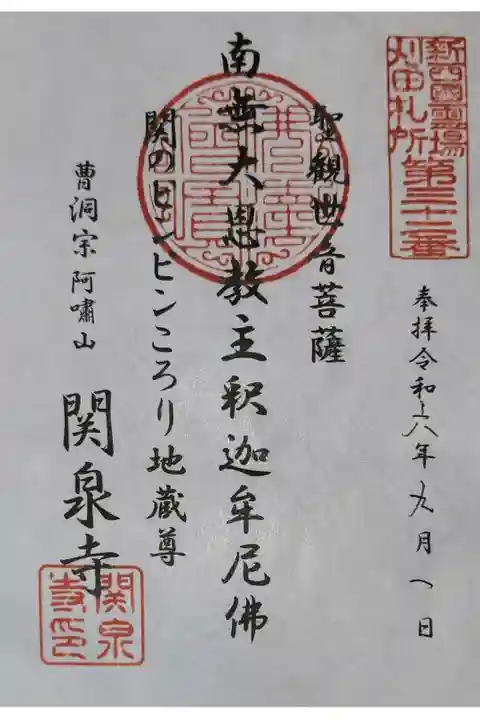 新西國霊場
刈田札所第三十二番
奉拝令和六年九月八日
聖観世音菩薩
南無大恩教主釈迦牟尼佛
関のピンピンころり地蔵尊
曹洞宗阿嘯山
関泉寺
関泉
寺印